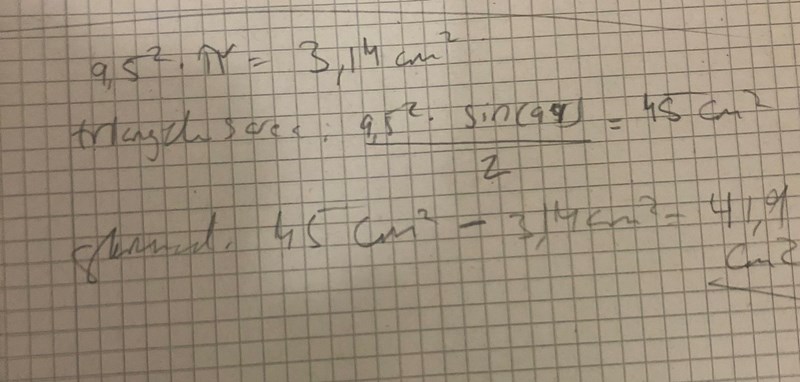 9,5² · π = 3,14 cm²
triangels area: 9,5² · sin(94) / 2 = 45 cm²
45 cm² - 3,14 cm² = 41,9
cm²